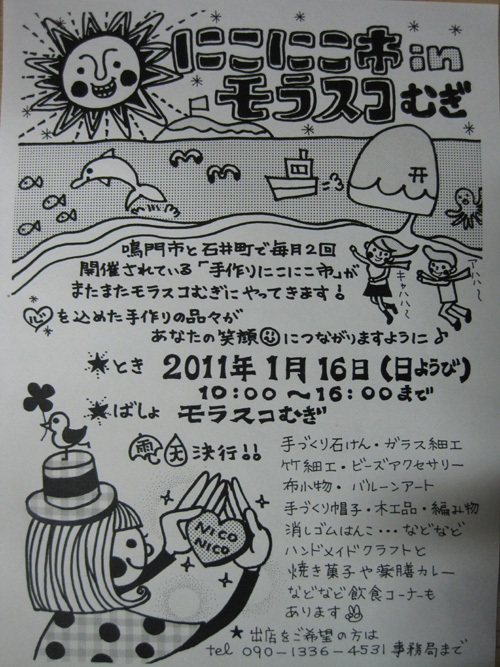 にこにこ市 in
モラスコむぎ
鳴門市と石井町で毎月2回
開催されている「手作りにこにこ市」が
またまたモラスコむぎにやってきます!
キャハハ〜
アハハ〜
心を込めた手作りの品々が
あなたの笑顔につながりますように♪
★とき 2011年1月16日(日ようび)
10:00〜16:00まで
★ばしょ モラスコむぎ
雨天決行!!
手づくり石けん・ガラス細工
竹細工・ビーズアクセサリー
布小物・バルーンアート
手づくり帽子・木工品・編み物
消しゴムはんこ・・・などなど
ハンドメイドクラフトと
焼き菓子や薬膳カレー
などなど飲食コーナーも
あります
NICO
NICO
★出店をご希望の方は
tel 090-1336-4531 事務局まで